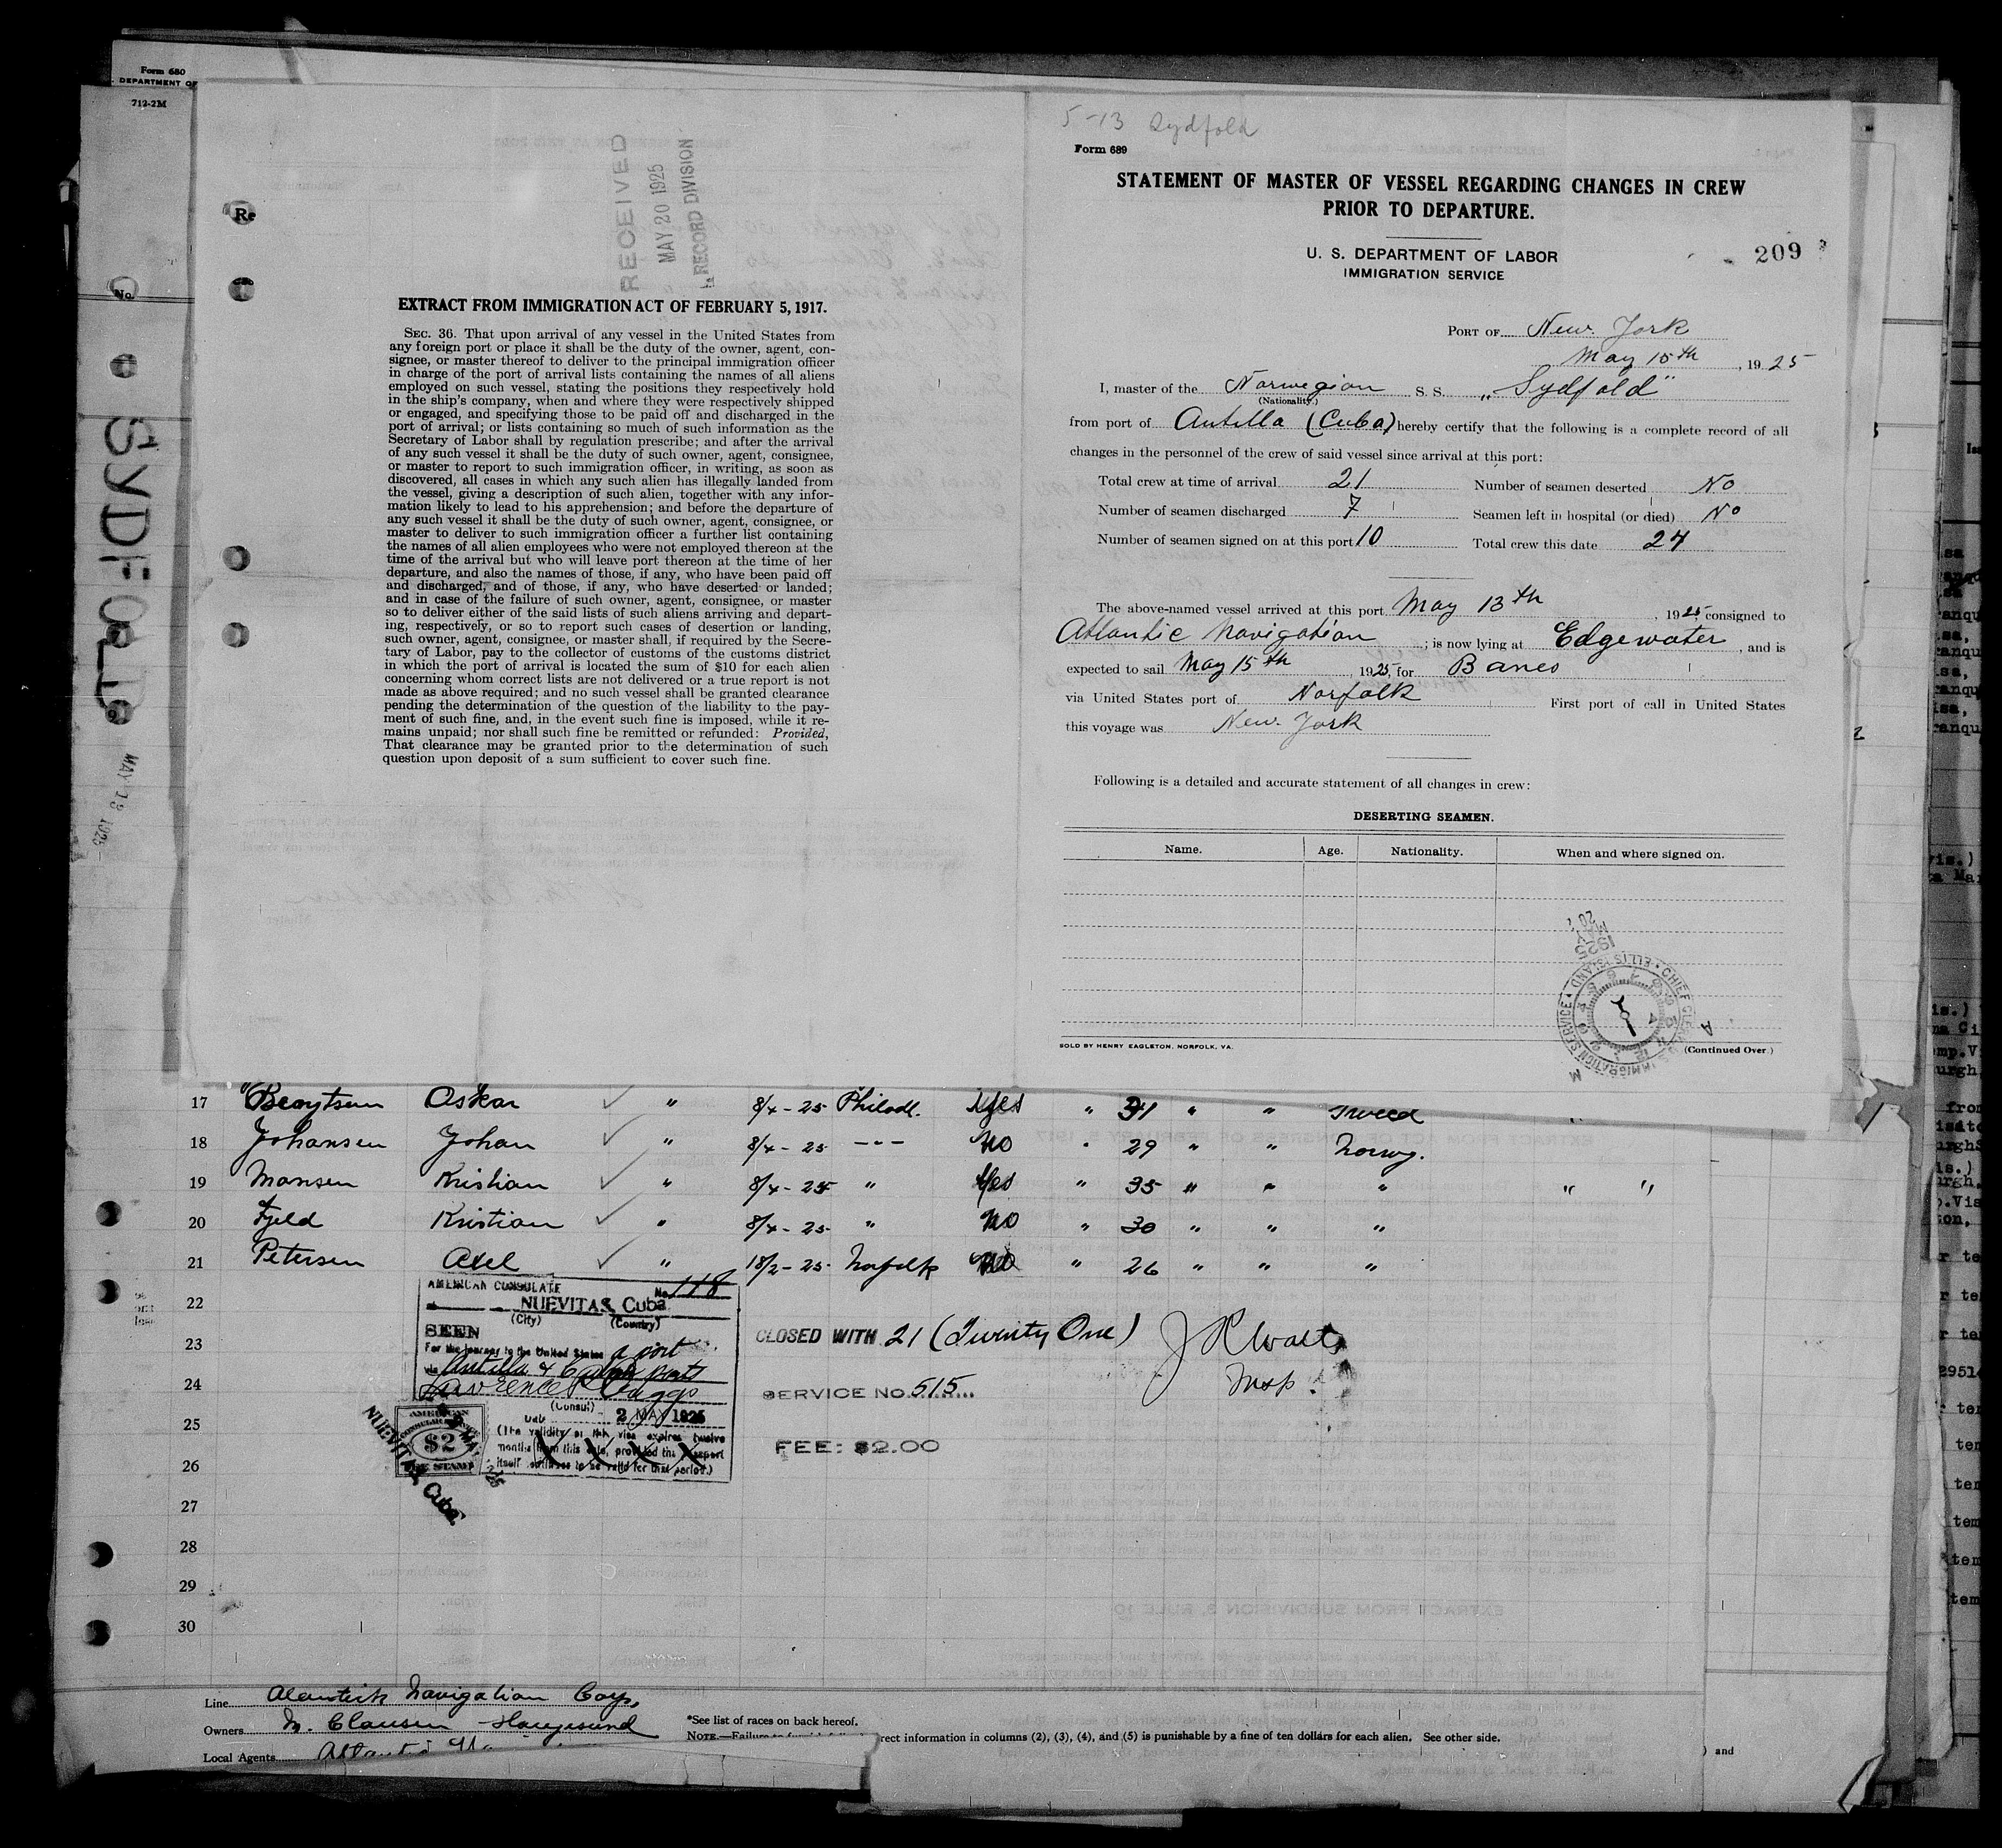 Form 680
DEPARTMENT OF
712-2M
Re
No.
SYDFOLD
MAY 13 1925
RECEIVED
MAY 20 1925
RECORD DIVISION
EXTRACT FROM IMMIGRATION ACT OF FEBRUARY 5, 1917.
SEC. 36. That upon arrival of any vessel in the United States from
any foreign port or place it shall be the duty of the owner, agent, con-
signee, or master thereof to deliver to the principal immigration officer
in charge of the port of arrival lists containing the names of all aliens
employed on such vessel, stating the positions they respectively hold
in the ship's company, when and where they were respectively shipped
or engaged, and specifying those to be paid off and discharged in the
port of arrival; or lists containing so much of such information as the
Secretary of Labor shall by regulation prescribe; and after the arrival
of any such vessel it shall be the duty of such owner, agent, consignee,
or master to report to such immigration officer, in writing, as soon as
discovered, all cases in which any such alien has illegally landed from
the vessel, giving a description of such alien, together with any infor-
mation likely to lead to his apprehension; and before the departure of
any such vessel it shall be the duty of such owner, agent, consignee, or
master to deliver to such immigration officer a further list containing
the names of all alien employees who were not employed thereon at the
time of the arrival but who will leave port thereon at the time of her
departure, and also the names of those, if any, who have been paid off
and discharged, and of those, if any, who have deserted or landed;
and in case of the failure of such owner, agent, consignee, or master
so to deliver either of the said lists of such aliens arriving and depart-
ing, respectively, or so to report such cases of desertion or landing,
such owner, agent, consignee, or master shall, if required by the Secre-
tary of Labor, pay to the collector of customs of the customs district
in which the port of arrival is located the sum of $10 for each alien
concerning whom correct lists are not delivered or a true report is not
made as above required; and no such vessel shall be granted clearance
pending the determination of the question of the liability to the pay-
ment of such fine, and, in the event such fine is imposed, while it re-
mains unpaid; nor shall such fine be remitted or refunded: Provided,
That clearance may be granted prior to the determination of such
question upon deposit of a sum sufficient to cover such fine.
5-13 Sydfold
Form 689
STATEMENT OF MASTER OF VESSEL REGARDING CHANGES IN CREW
PRIOR TO DEPARTURE.
U. S. DEPARTMENT OF LABOR
IMMIGRATION SERVICE
209
PORT OF New York
May 15th, 1925
I, master of the Norwegian S. S. „Sydfold"
(Nationality.)
from port of Antilla (Cuba) hereby certify that the following is a complete record of all
changes in the personnel of the crew of said vessel since arrival at this port:
Total crew at time of arrival 21 Number of seamen deserted No
Number of seamen discharged 7 Seamen left in hospital (or died) No
Number of seamen signed on at this port 10 Total crew this date 24
The above-named vessel arrived at this port May 13th, 1925, consigned to
Atlantic Navigation; is now lying at Edgewater, and is
expected to sail May 15th 1925, for Banes
via United States port of Norfolk First port of call in United States
this voyage was New York
Following is a detailed and accurate statement of all changes in crew:
DESERTING SEAMEN.
Name. Age. Nationality. When and where signed on.
MAY 20 1925
IMMIGRATION SERVICE ELLIS ISLAND CHIEF CLERK
SOLD BY HENRY EAGLETON, NORFOLK, VA.
(Continued Over)
17 Oskar " 8/4-25 Philadl. Yes " 31 " "
18 Johansen Johan " 8/4-25 --- No " 29 " " Norwg.
19 Kristian " 8/4-25 " Yes " 35 " " " " "
20 Fjeld Kristian " 8/4-25 " No " 30 " " "
21 Petersen Axel " 18/2-25 Norfolk No " 26 " " "
22
23
24
25
26
27
28
29
30
AMERICAN CONSULATE
No. 118
NUEVITAS, Cuba
(City) (Country)
SEEN
For the journey to the United States a port
via Antilla & Cuban ports
(Consul)
Date 2 MAY 1925
(The validity of this visa expires twelve
months from this date, provided the passport
itself continues to be valid for that period.)
AMERICAN
CONSULAR SERVICE
$2
FEE STAMP
NUEVITAS, Cuba.
CLOSED WITH 21 (Twenty One)
Insp.
SERVICE NO. 515
FEE: $2.00
Line Atlantik Navigation Corp.
Owners M. Clausen Haugesund
Local Agents
*See list of races on back hereof.
NOTE.—Failure
rect information in columns (2), (3), (4), and (5) is punishable by a fine of ten dollars for each alien. See other side.
) and